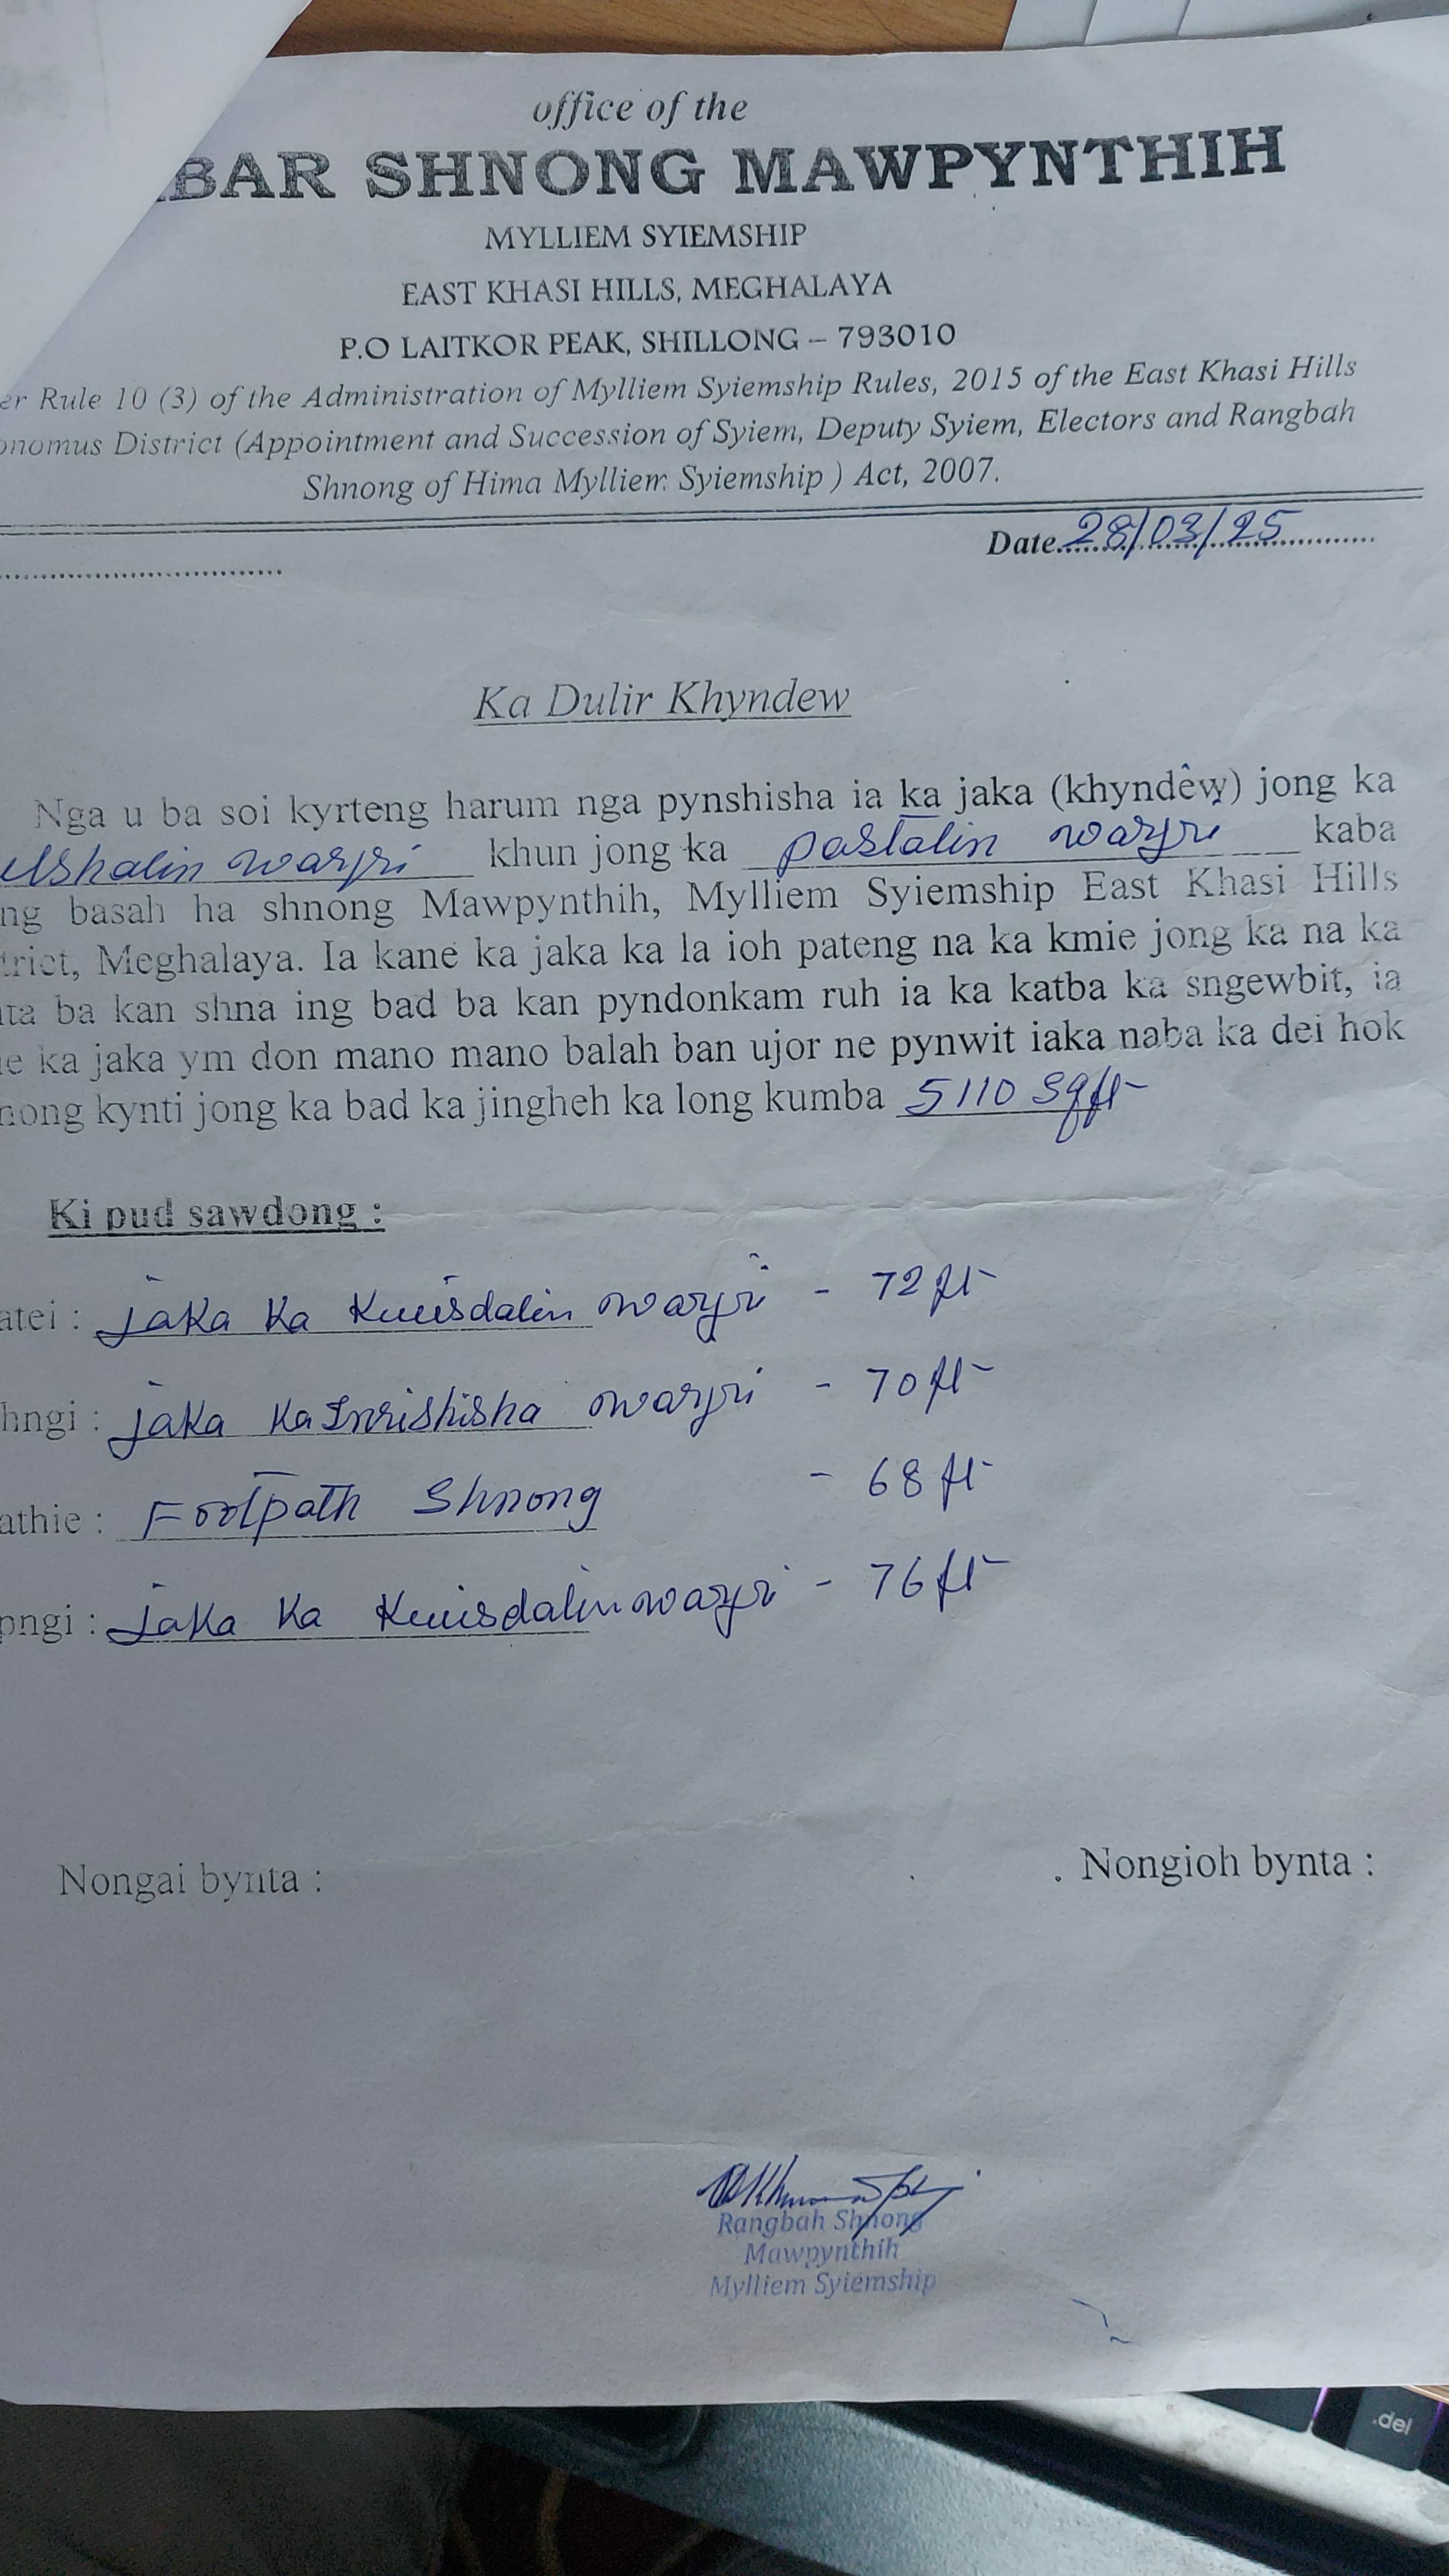 office of the
BAR SHNONG MAWPYNTHIH
MYLLIEM SYIEMSHIP
EAST KHASI HILLS, MEGHALAYA
P.O LAITKOR PEAK, SHILLONG – 793010
er Rule 10 (3) of the Administration of Mylliem Syiemship Rules, 2015 of the East Khasi Hills
onomus District (Appointment and Succession of Syiem, Deputy Syiem, Electors and Rangbah
Shnong of Hima Mylliem Syiemship ) Act, 2007.
Date 28/03/25
Ka Dulir Khyndew
Nga u ba soi kyrteng harum nga pynshisha ia ka jaka (khyndêw) jong ka
warjri khun jong ka pastalin warjri kaba
ng basah ha shnong Mawpynthih, Mylliem Syiemship East Khasi Hills
trict, Meghalaya. Ia kane ka jaka ka la ioh pateng na ka kmie jong ka na ka
ta ba kan shna ing bad ba kan pyndonkam ruh ia ka katba ka sngewbit, ia
e ka jaka ym don mano mano balah ban ujor ne pynwit iaka naba ka dei hok
nong kynti jong ka bad ka jingheh ka long kumba 5110 sqft
Ki pud sawdong :
atei : jaka ka warjri - 72 ft
hngi : jaka ka warjri - 70 ft
athie : Footpath Shnong - 68 ft
pngi : jaka ka warjri - 76 ft
Nongai bynta : Nongioh bynta :
Rangbah Shnong
Mawpynthih
Mylliem Syiemship
.del